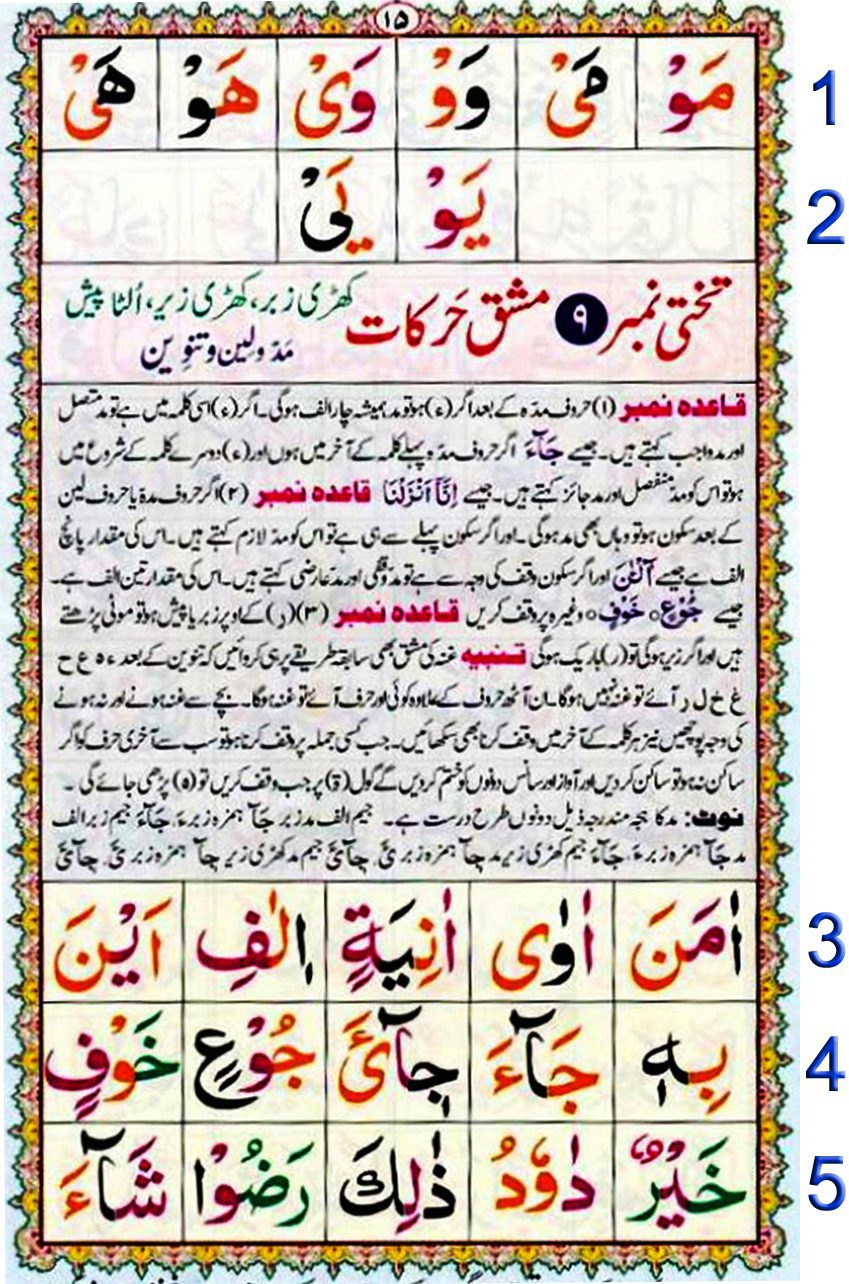 ۱۵
مَوْ مَیْ وَوْ وَیْ هَوْ هَیْ
1
يَوْ يَیْ
2
تختی نمبر ۹ مشق حَرکات کھڑی زبر، کھڑی زیر، اُلٹا پیش
مَدّ ولین و تنوِین
قاعدہ نمبر (۱) حروف مدّہ کے بعد اگر (ء) ہو تو مد ہمیشہ چار الف ہوگی۔ اگر (ء) اسی کلمہ میں ہے تو مد متصل
اور مد واجب کہتے ہیں۔ جیسے جَآءَ اگر حروف مدّہ پہلے کلمہ کے آخر میں ہوں اور (ء) دوسرے کلمہ کے شروع میں
ہو تو اس کو مدّ منفصل اور مد جائز کہتے ہیں۔ جیسے اِنَّآ اَنْزَلْنَا قاعدہ نمبر (۲) اگر حروف مدّہ یا حروف لین
کے بعد سکون ہو تو وہاں بھی مد ہوگی۔ اور اگر سکون پہلے سے ہی ہے تو اس کو مدّ لازم کہتے ہیں۔ اس کی مقدار پانچ
الف ہے جیسے آلْـٰٔنَ اور اگر سکون وقف کی وجہ سے ہے تو مد وقفی اور مد عارضی کہتے ہیں۔ اس کی مقدار تین الف ہے۔
جیسے جُوْعٍ۝ خَوْفٍ۝ وغیرہ پر وقف کریں قاعدہ نمبر (۳) (ر) کے اوپر زبر یا پیش ہو تو موٹی پڑھتے
ہیں اور اگر زیر ہوگی تو (ر) باریک ہوگی تنبیہ غنہ کی مشق بھی سابقہ طریقے پر ہی کروائیں کہ تنوین کے بعد ء ہ ع ح
غ خ ل ر آئے تو غنہ نہیں ہوگا۔ ان آٹھ حروف کے علاوہ کوئی اور حرف آئے تو غنہ ہوگا۔ بچے سے غنہ ہونے اور نہ ہونے
کی وجہ پوچھیں نیز ہر کلمہ کے آخر میں وقف کرنا بھی سکھائیں۔ جب کسی جملہ پر وقف کرنا ہو تو سب سے آخری حرف کو اگر
ساکن نہ ہو تو ساکن کر دیں اور آواز اور سانس دونوں کو ختم کر دیں گے گول (ة) پر جب وقف کریں تو (ہ) پڑھی جائے گی ۔
نوٹ: مد کا ہجہ مندرجہ ذیل دونوں طرح درست ہے۔ جیم الف مد زبر جآ ہمزہ زبر ءَ، جَآءَ جیم زبر الف
مد جَآ ہمزہ زبر ءَ، جَآءَ جیم کھڑی زیر مد جٖآ ہمزہ زبر ئَ، جِآئَ جیم مد کھڑی زیر جٖآ ہمزہ زبر ئَ، جِآئَ
اٰمَنَ اٰوٰی اٰنِيَةٍ اٖلٰفِ اَيْنَ
3
بِهٖ جَآءَ جِآیْٓءَ جُوْعٍ خَوْفٍ
4
خَيْرٌ دَاوٗدُ ذٰلِكَ رَضُوْا شَآءَ
5